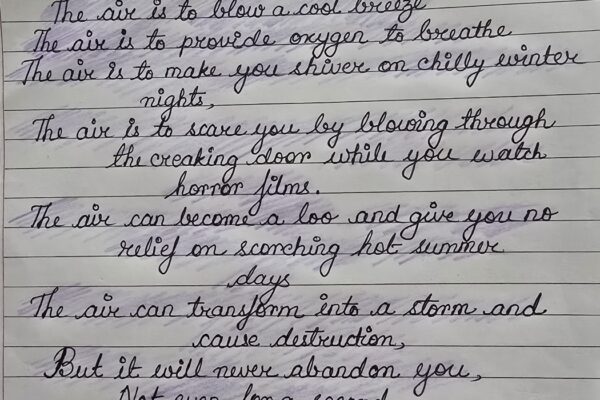 The air is to blow a cool breeze
The air is to provide oxygen to breathe
The air is to make you shiver on chilly winter
nights,
The air is to scare you by blowing through
the creaking door while you watch
horror films.
The air can become a loo and give you no
relief on scorching hot summer
days
The air can transform into a storm and
cause destruction,
But it will never abandon you,
Not even for a second